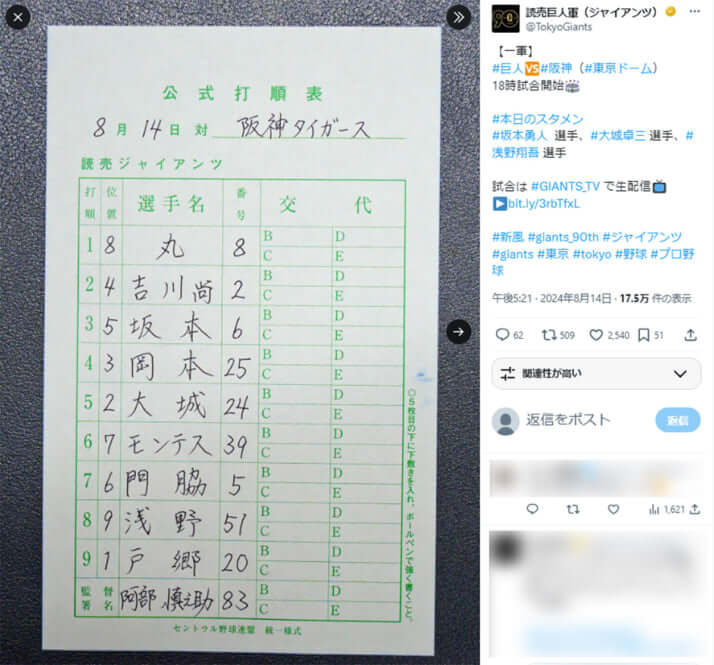 公式打順表
8月14日 対 阪神タイガース
読売ジャイアンツ
打順 位置 選手名 番号 交代
1 8 丸 8 B D C E
2 4 吉川尚 2 B D C E
3 5 坂本 6 B D C E
4 3 岡本 25 B D C E
5 2 大城 24 B D C E
6 7 モンテス 39 B D C E
7 6 門脇 5 B D C E
8 9 浅野 51 B D C E
9 1 戸郷 20 B D C E
監督署名 阿部慎之助 83 B D C E
○5枚目の下に下敷きを入れ、ボールペンで強く書くこと。
セントラル野球連盟 統一様式
読売巨人軍（ジャイアンツ）
@TokyoGiants
【一軍】
#巨人🆚#阪神（#東京ドーム）
18時試合開始🏟
#本日のスタメン
#坂本勇人 選手、#大城卓三 選手、#
浅野翔吾 選手
試合は #GIANTS_TV で生配信📺
▶bit.ly/3rbTfxL
#新風 #giants_90th #ジャイアンツ
#giants #東京 #tokyo #野球 #プロ野
球
午後5:21 · 2024年8月14日 · 17.5万 件の表示
62 509 2,540 51
関連性が高い
返信をポスト
返信
1,621